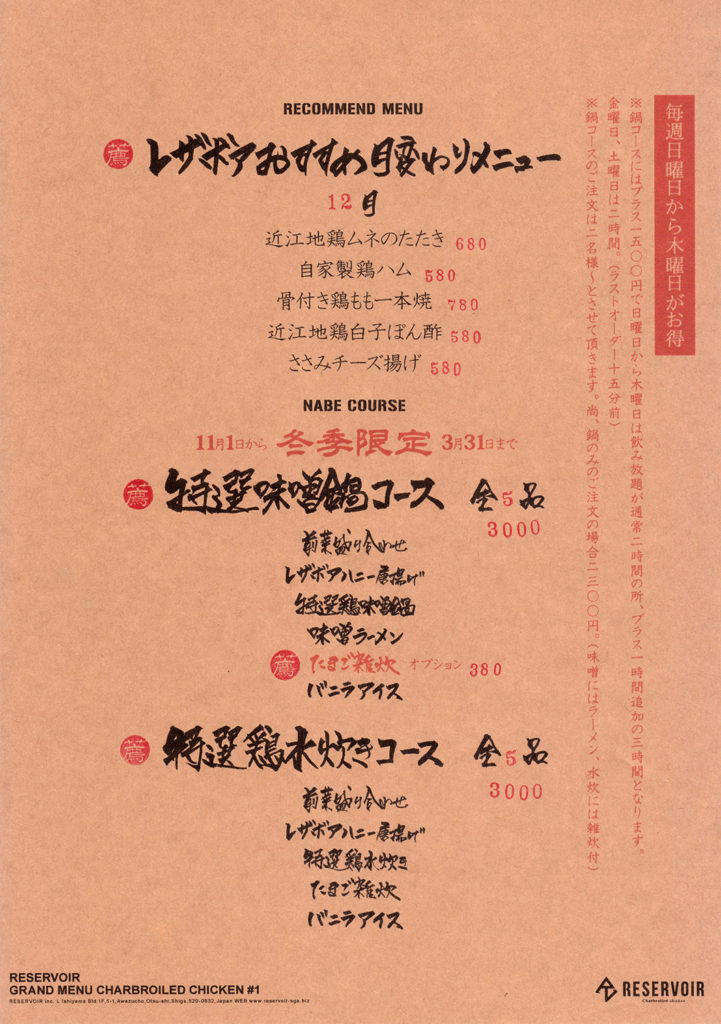 RECOMMEND MENU
薦 レザボアおすすめ月変わりメニュー
12月
近江地鶏ムネのたたき 680
自家製鶏ハム 580
骨付き鶏もも一本焼 780
近江地鶏白子ぽん酢 580
ささみチーズ揚げ 580
NABE COURSE
11月1日から 冬季限定 3月31日まで
薦 特選味噌鍋コース 全5品
3000
前菜盛り合わせ
レザボアハニー唐揚げ
特選鶏味噌鍋
味噌ラーメン
薦 たまご雑炊 オプション 380
バニラアイス
薦 特選鶏水炊きコース 全5品
3000
前菜盛り合わせ
レザボアハニー唐揚げ
特選鶏水炊き
たまご雑炊
バニラアイス
毎週日曜日から木曜日がお得
※鍋コースにはプラス一五〇〇円で日曜日から木曜日は飲み放題が通常二時間の所、プラス一時間追加の三時間となります。
金曜日、土曜日は二時間。（ラストオーダー十五分前）
※鍋コースのご注文は二名様〜とさせて頂きます。尚、鍋のみのご注文の場合二三〇〇円。（味噌にはラーメン、水炊には雑炊付）
RESERVOIR
GRAND MENU CHARBROILED CHICKEN #1
RESERVOIR inc. L Ishiyama Bld 1F,5-1,Awazucho,Otsu-shi,Shiga,520-0832,Japan WEB www.reservoir-sga.biz
RESERVOIR
Charbroiled chicken